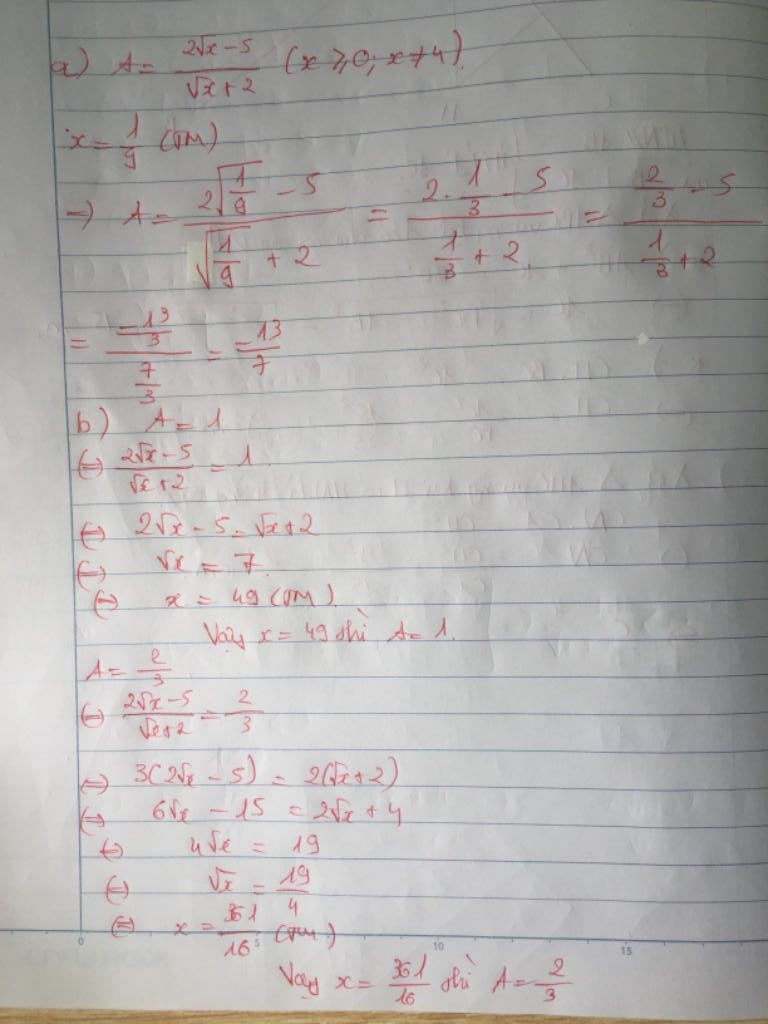 a) A = (2√x - 5)/(√x + 2) (x ⩾ 0; x ≠ 4).
x = 1/9 (TM)
=) A = (2√(1/9) - 5)/(√(1/9) + 2) = (2.1/3 - 5)/(1/3 + 2) = (2/3 - 5)/(1/3 + 2)
= (-13/3)/(7/3) = -13/7
b) A = 1
(=) (2√x - 5)/(√x + 2) = 1
(=) 2√x - 5 = √x + 2
(=) √x = 7
(=) x = 49 (TM).
Vậy x = 49 thì A = 1.
A = 2/3
(=) (2√x - 5)/(√x + 2) = 2/3
(=) 3(2√x - 5) = 2(√x + 2)
(=) 6√x - 15 = 2√x + 4
(=) 4√x = 19
(=) √x = 19/4
(=) x = 361/16 (TM)
0 5 10 15
Vậy x = 361/16 thì A = 2/3